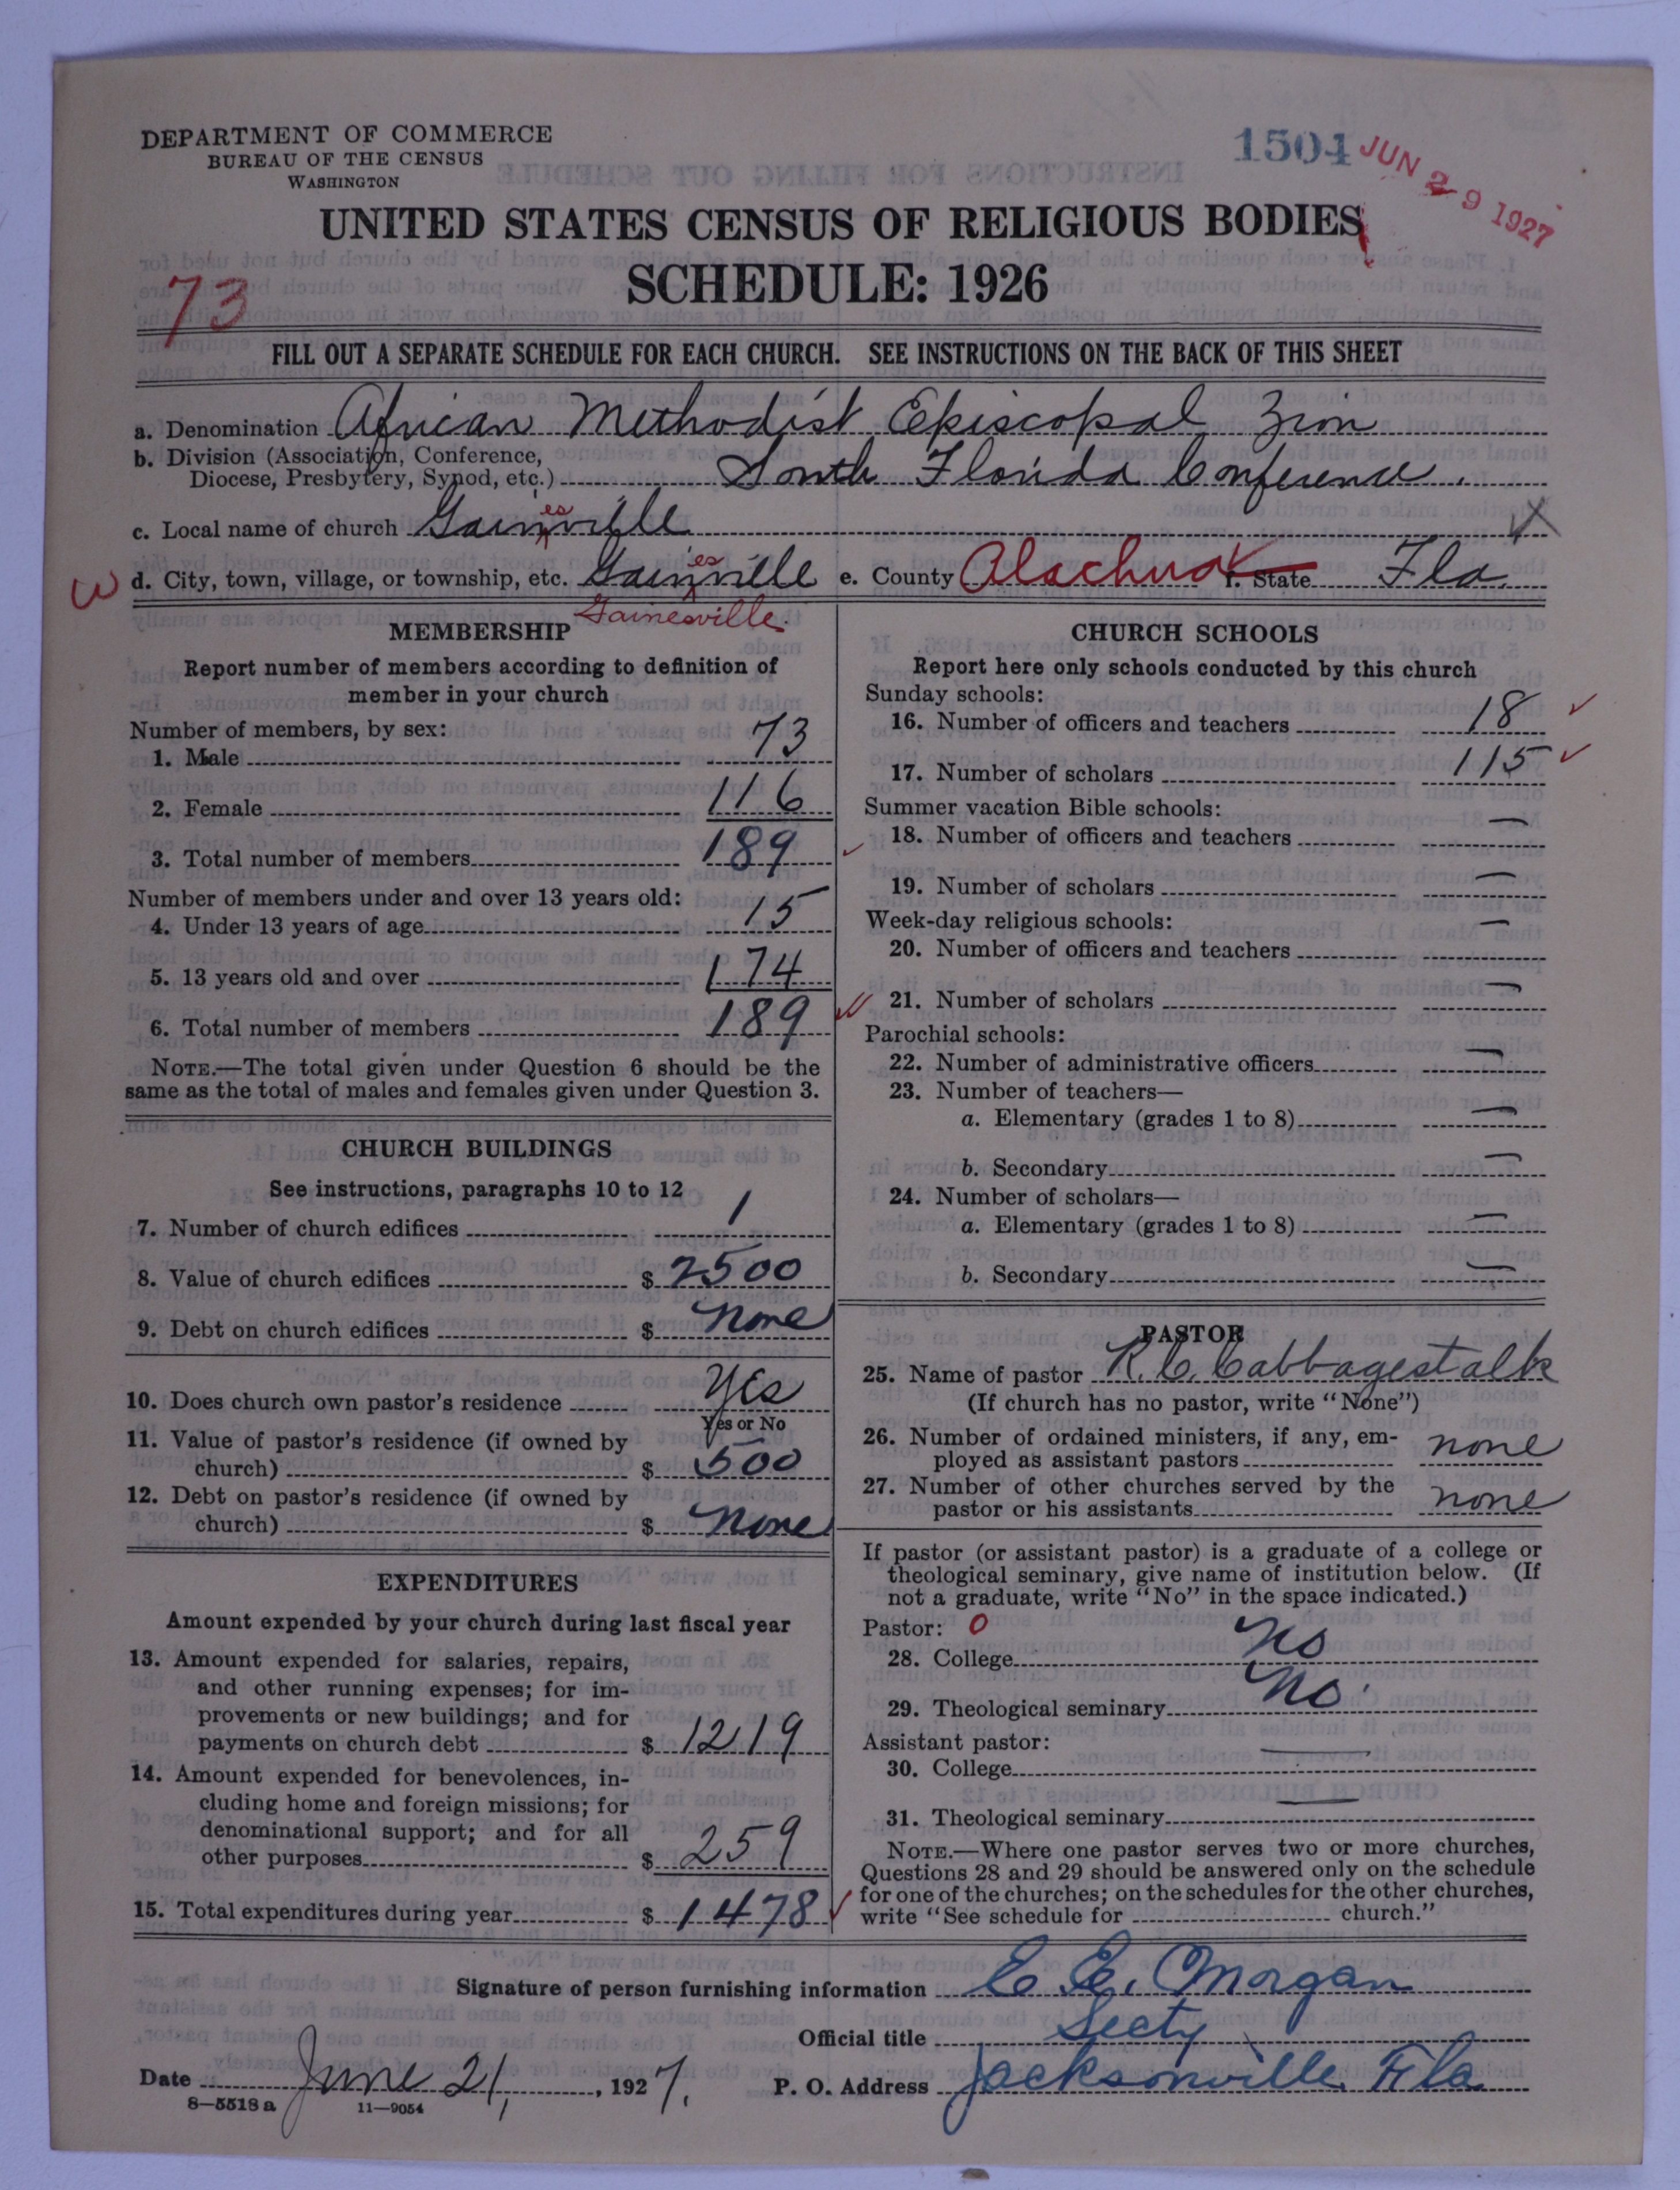 DEPARTMENT OF COMMERCE
BUREAU OF THE CENSUS
WASHINGTON
1504
JUN 29 1927
UNITED STATES CENSUS OF RELIGIOUS BODIES
SCHEDULE: 1926
73
FILL OUT A SEPARATE SCHEDULE FOR EACH CHURCH. SEE INSTRUCTIONS ON THE BACK OF THIS SHEET
a. Denomination African Methodist Episcopal Zion
b. Division (Association, Conference,
Diocese, Presbytery, Synod, etc.) South Florida Conference.
es
c. Local name of church Gainville
es
W d. City, town, village, or township, etc. Gainville e. County Alachua f. State Fla.
Gainesville.
MEMBERSHIP
Report number of members according to definition of
member in your church
Number of members, by sex:
1. Male 73
2. Female 116
3. Total number of members 189
Number of members under and over 13 years old:
4. Under 13 years of age 15
5. 13 years old and over 174
6. Total number of members 189
NOTE.—The total given under Question 6 should be the
same as the total of males and females given under Question 3.
CHURCH BUILDINGS
See instructions, paragraphs 10 to 12
7. Number of church edifices 1
8. Value of church edifices $ 2500
9. Debt on church edifices $ none
10. Does church own pastor's residence yes
Yes or No
11. Value of pastor's residence (if owned by
church) $ 500
12. Debt on pastor's residence (if owned by
church) $ none
EXPENDITURES
Amount expended by your church during last fiscal year
13. Amount expended for salaries, repairs,
and other running expenses; for im-
provements or new buildings; and for
payments on church debt $ 1219
14. Amount expended for benevolences, in-
cluding home and foreign missions; for
denominational support; and for all
other purposes $ 259
15. Total expenditures during year $ 1478
CHURCH SCHOOLS
Report here only schools conducted by this church
Sunday schools:
16. Number of officers and teachers 18
17. Number of scholars 115
Summer vacation Bible schools:
18. Number of officers and teachers —
19. Number of scholars —
Week-day religious schools:
20. Number of officers and teachers —
21. Number of scholars —
Parochial schools:
22. Number of administrative officers —
23. Number of teachers—
a. Elementary (grades 1 to 8) —
b. Secondary —
24. Number of scholars—
a. Elementary (grades 1 to 8) —
b. Secondary —
PASTOR
25. Name of pastor R. C. Cabbagestalk
(If church has no pastor, write "None")
26. Number of ordained ministers, if any, em-
ployed as assistant pastors none
27. Number of other churches served by the
pastor or his assistants none
If pastor (or assistant pastor) is a graduate of a college or
theological seminary, give name of institution below. (If
not a graduate, write "No" in the space indicated.)
Pastor: 0
28. College no
29. Theological seminary no
Assistant pastor:
30. College —
31. Theological seminary —
NOTE.—Where one pastor serves two or more churches,
Questions 28 and 29 should be answered only on the schedule
for one of the churches; on the schedules for the other churches,
write "See schedule for church."
Signature of person furnishing information E. E. Morgan
Official title Secty
Date June 21, 1927. P. O. Address Jacksonville Fla
8—5518 a 11—9054